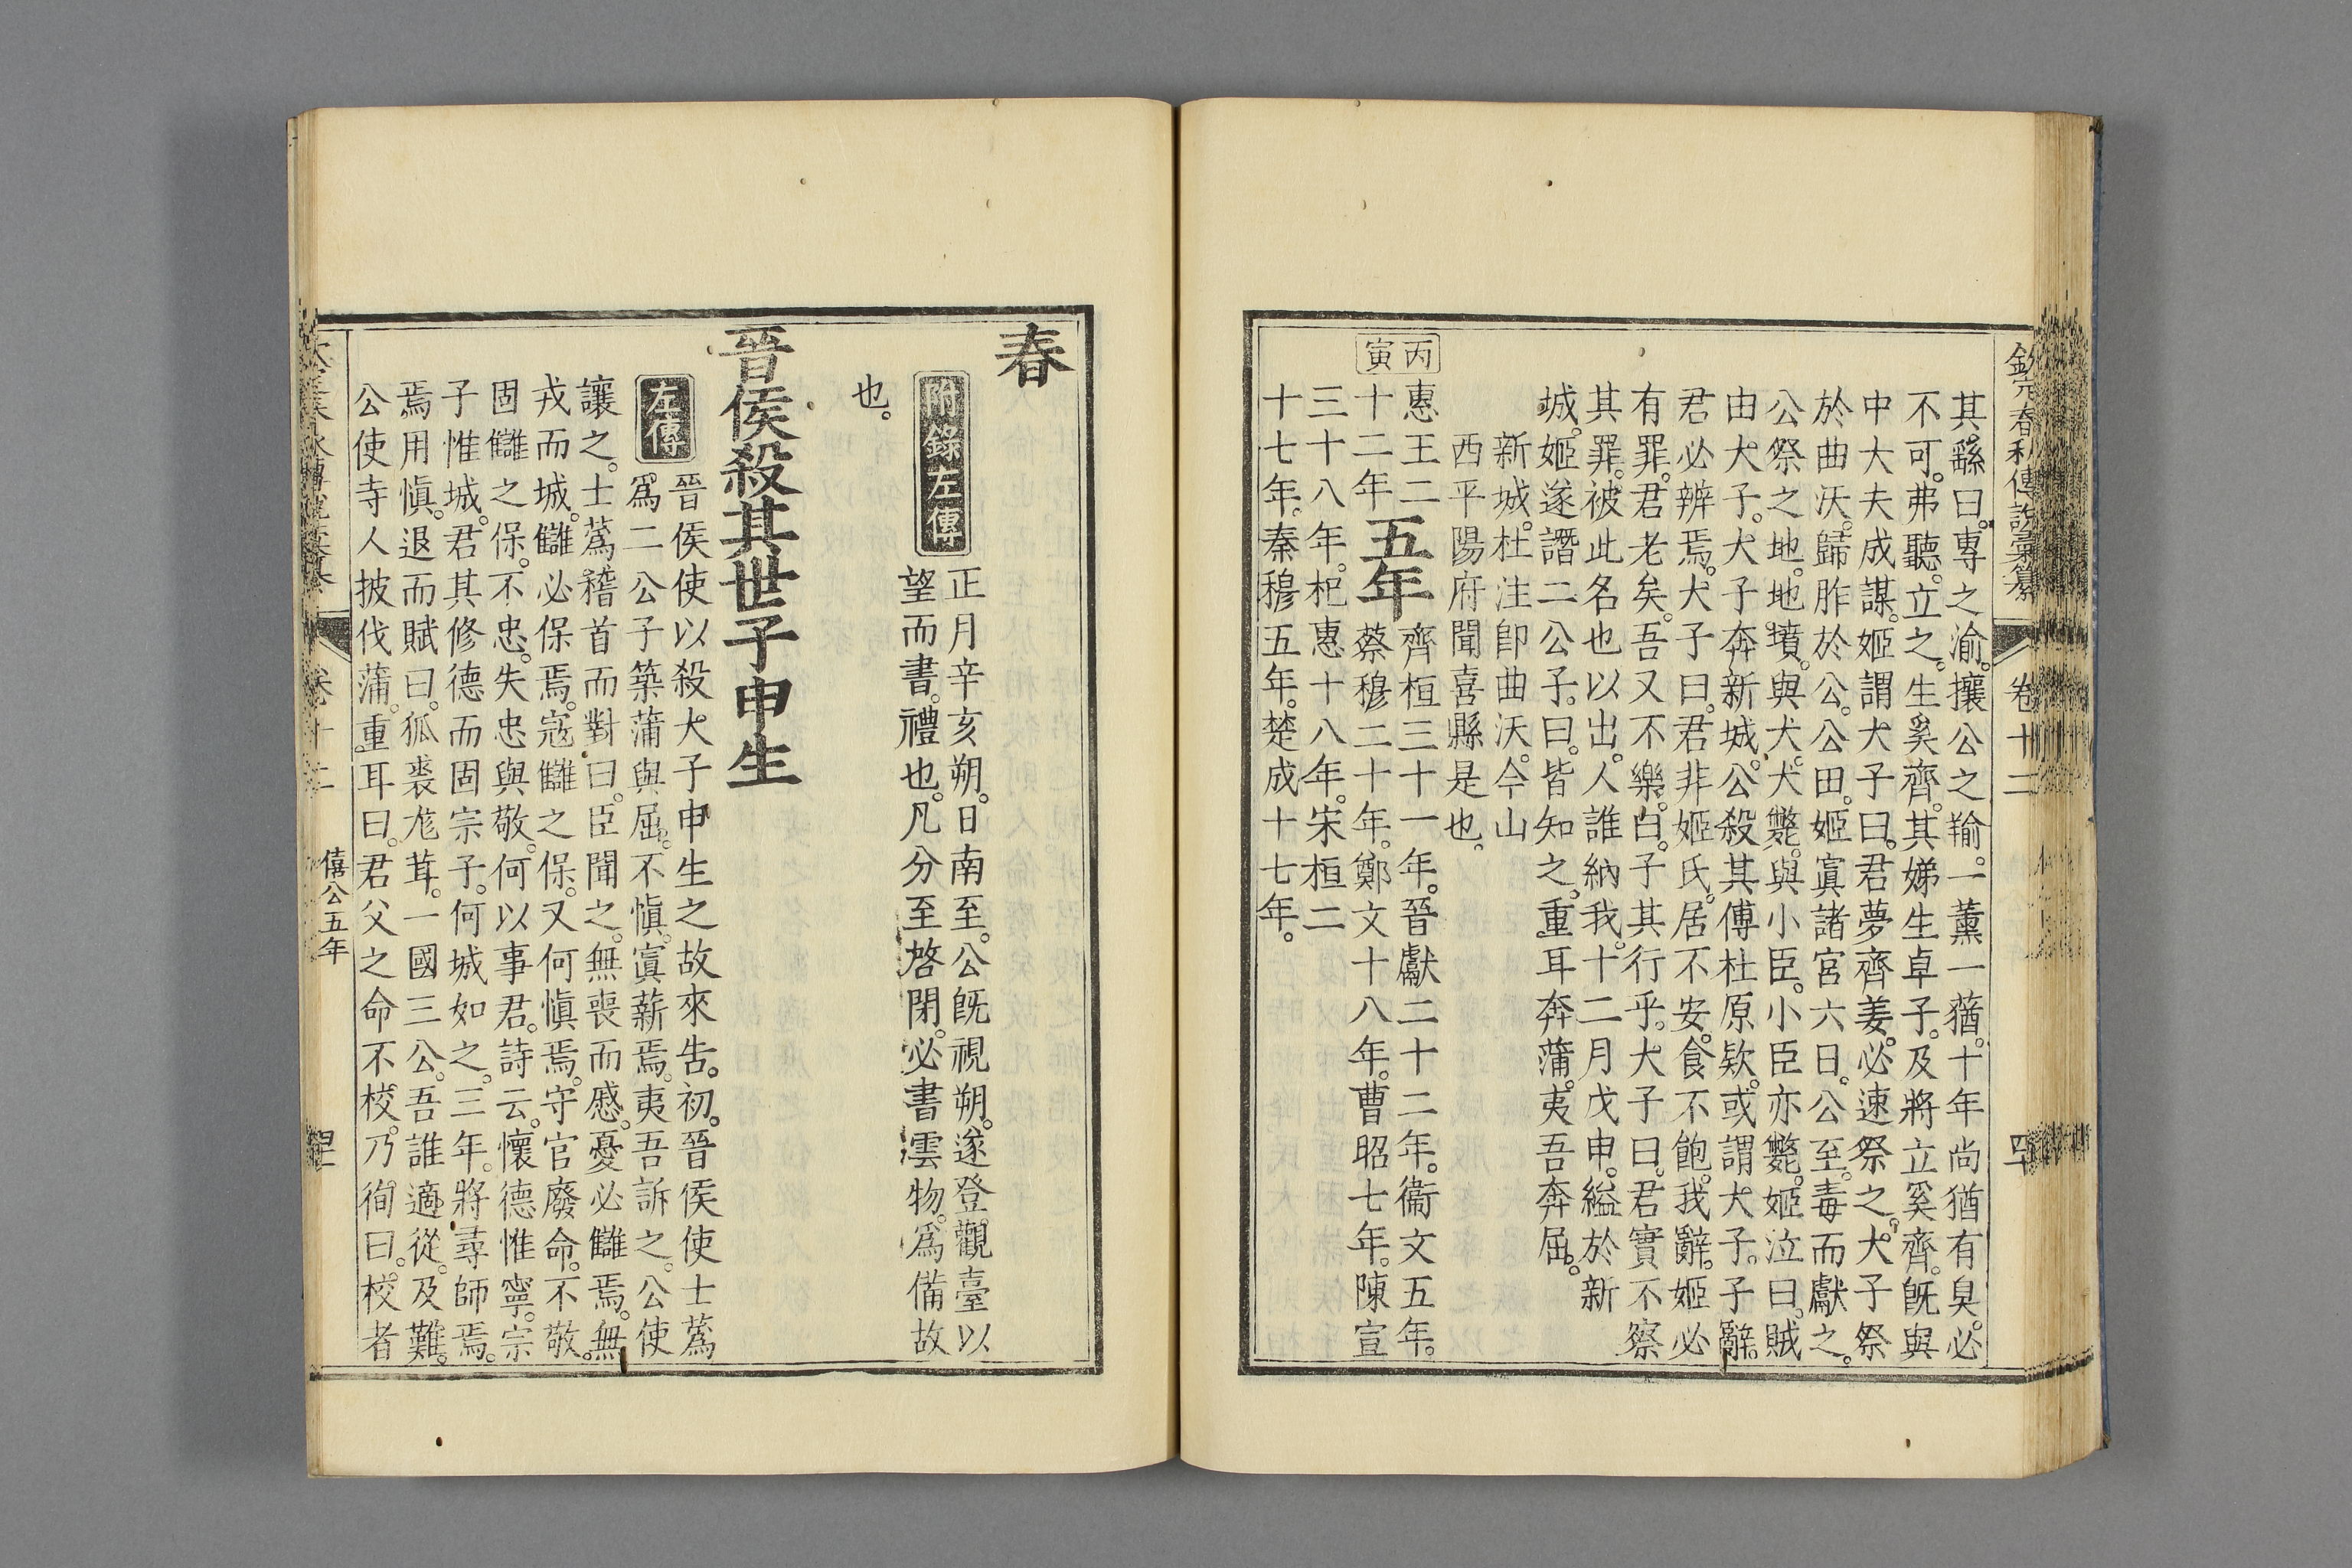 欽定春秋傳說彙纂 卷十二 四十
其繇曰。專之渝。攘公之羭。一薰一蕕。十年尚猶有臭。必
不可。弗聽。立之。生奚齊。其娣生卓子。及將立奚齊。旣與
中大夫成謀。姬謂大子曰。君夢齊姜。必速祭之。大子祭
於曲沃。歸胙於公。公田。姬寘諸宮六日。公至。毒而獻之。
公祭之地。地墳。與犬。犬斃。與小臣。小臣亦斃。姬泣曰。賊
由大子。大子奔新城。公殺其傅杜原款。或謂大子。子辭。
君必辨焉。大子曰。君非姬氏。居不安。食不飽。我辭。姬必
有罪。君老矣。吾又不樂。曰。子其行乎。大子曰。君實不察
其罪。被此名也以出。人誰納我。十二月戊申。縊於新
城。姬遂譖二公子。曰。皆知之。重耳奔蒲。夷吾奔屈。
新城。杜注卽曲沃。今山
西平陽府聞喜縣是也。
丙寅
惠王二十二年
五年
齊桓三十一年。晉獻二十二年。衞文五年。
蔡穆二十年。鄭文十八年。曹昭七年。陳宣
三十八年。杞惠十八年。宋桓二
十七年。秦穆五年。楚成十七年。
春
附錄左傳
正月辛亥朔。日南至。公旣視朔。遂登觀臺以
望而書。禮也。凡分至啓閉。必書雲物。爲備故
也。
晉侯殺其世子申生
左傳
晉侯使以殺大子申生之故來告。初。晉侯使士蔿
爲二公子築蒲與屈。不愼。寘薪焉。夷吾訴之。公使
讓之。士蔿稽首而對曰。臣聞之。無喪而慼。憂必讎焉。無
戎而城。讎必保焉。寇讎之保。又何愼焉。守官廢命。不敬。
固讎之保。不忠。失忠與敬。何以事君。詩云。懷德惟寧。宗
子惟城。君其修德而固宗子。何城如之。三年。將尋師焉。
焉用愼。退而賦曰。狐裘尨茸。一國三公。吾誰適從。及難。
公使寺人披伐蒲。重耳曰。君父之命不校。乃徇曰。校者
僖公五年